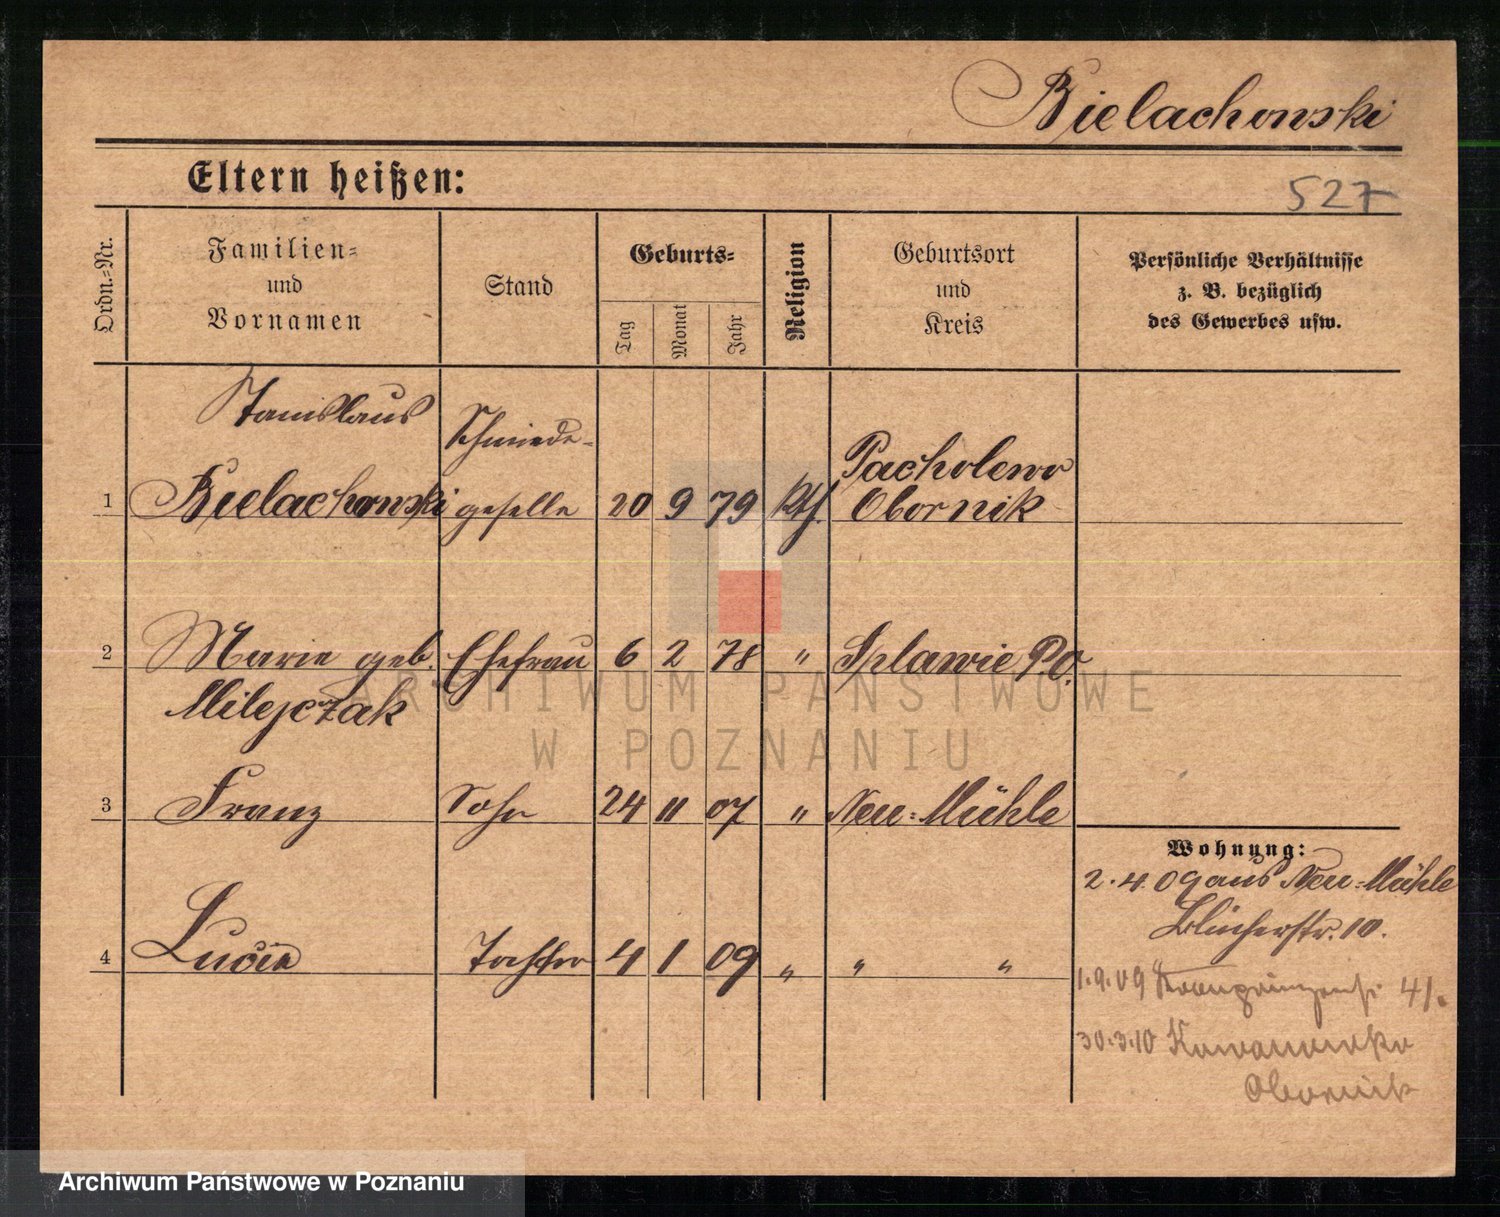 Bielachowski
Eltern heißen:
527
Ordn.=Nr.
Familien=
und
Vornamen
Stand
Geburts=
Tag
Monat
Jahr
Religion
Geburtsort
und
Kreis
Persönliche Verhältnisse
z. B. bezüglich
des Gewerbes usw.
Stanislaus Schmiede-
Pacholewo
1 Bielachowski geselle 20 9 79 kth. Obornik
2 Marie geb. Ehefrau 6 2 78 " Splawie P.O.
Milejczak
3 Franz Sohn 24 11 07 " Neu=Mühle
Wohnung:
2.4.09 aus Neu=Mühle
Blücherstr. 10.
4 Lucia Tochter 4 1 09 " " "
1.9.09 Kronprinzenstr 41.
30.3.10 Kowanowko
Obornik
ARCHIWUM PAŃSTWOWE
W POZNANIU
Archiwum Państwowe w Poznaniu